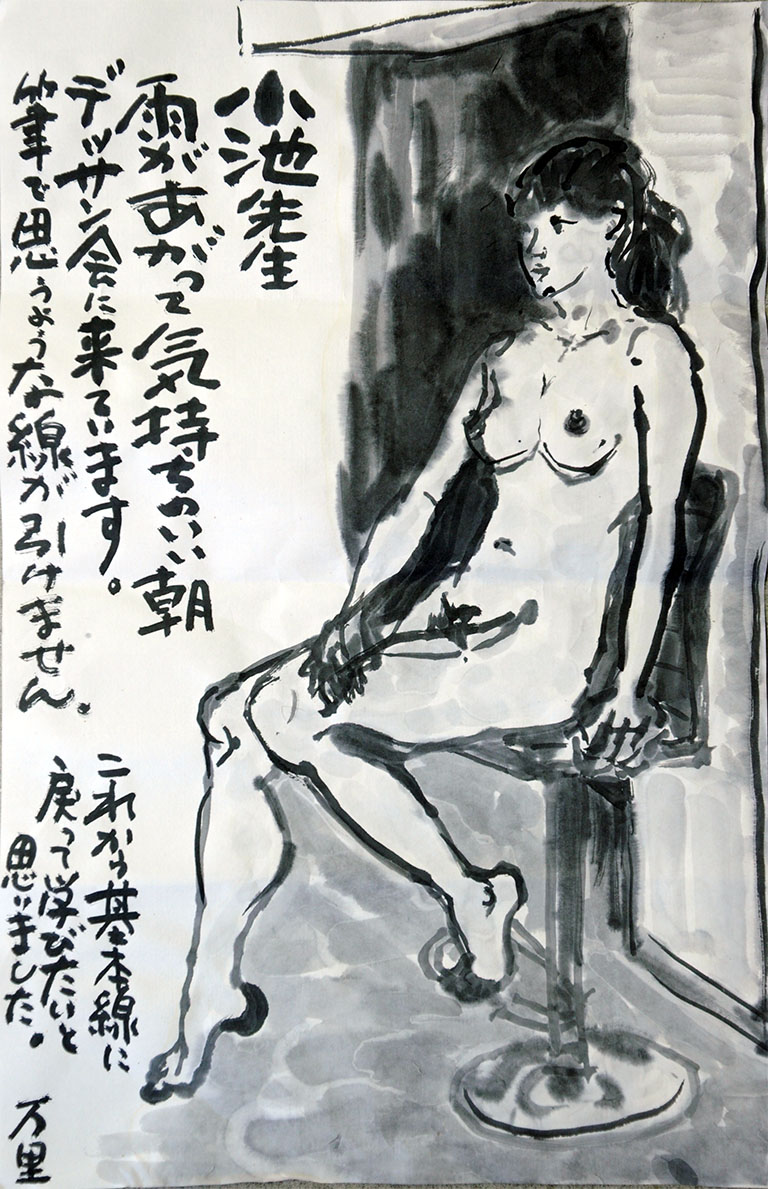 小池先生
雨があがって気持ちのいい朝
デッサン会に来ています。
筆で思うような線が引けません。
これから基本線に
戻って学びたいと
思いました。
万里